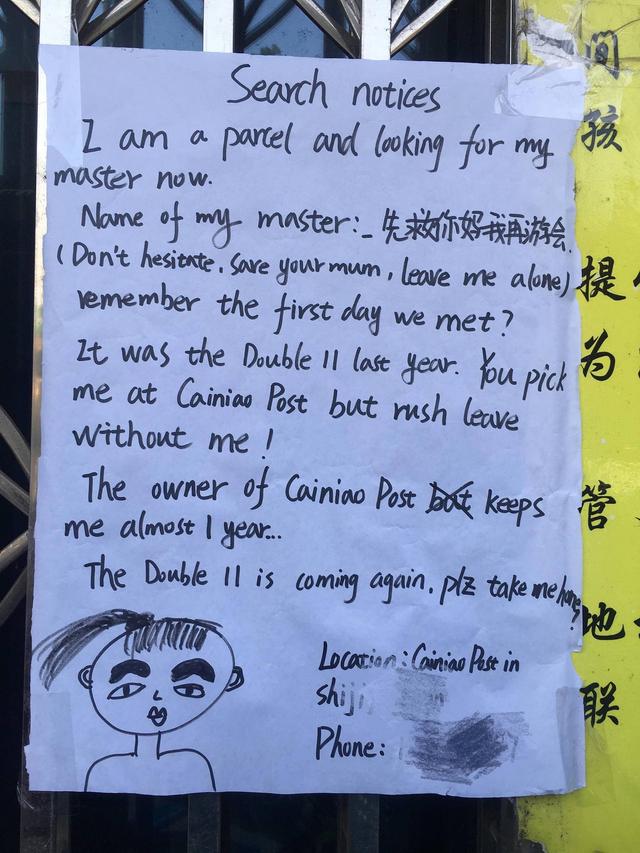 Search notices
I am a parcel and looking for my
master now.
Name of my master:_ 先救你妈我再游会
(Don't hesitate, save your mum, leave me alone)
remember the first day we met?
It was the Double 11 last year. You pick
me at Cainiao Post but rush leave
without me!
The owner of Cainiao Post but keeps
me almost 1 year...
The Double 11 is coming again, plz take me home
?
Location: Cainiao Post in
shiji
Phone:
间
孩
提
为
管
地
联